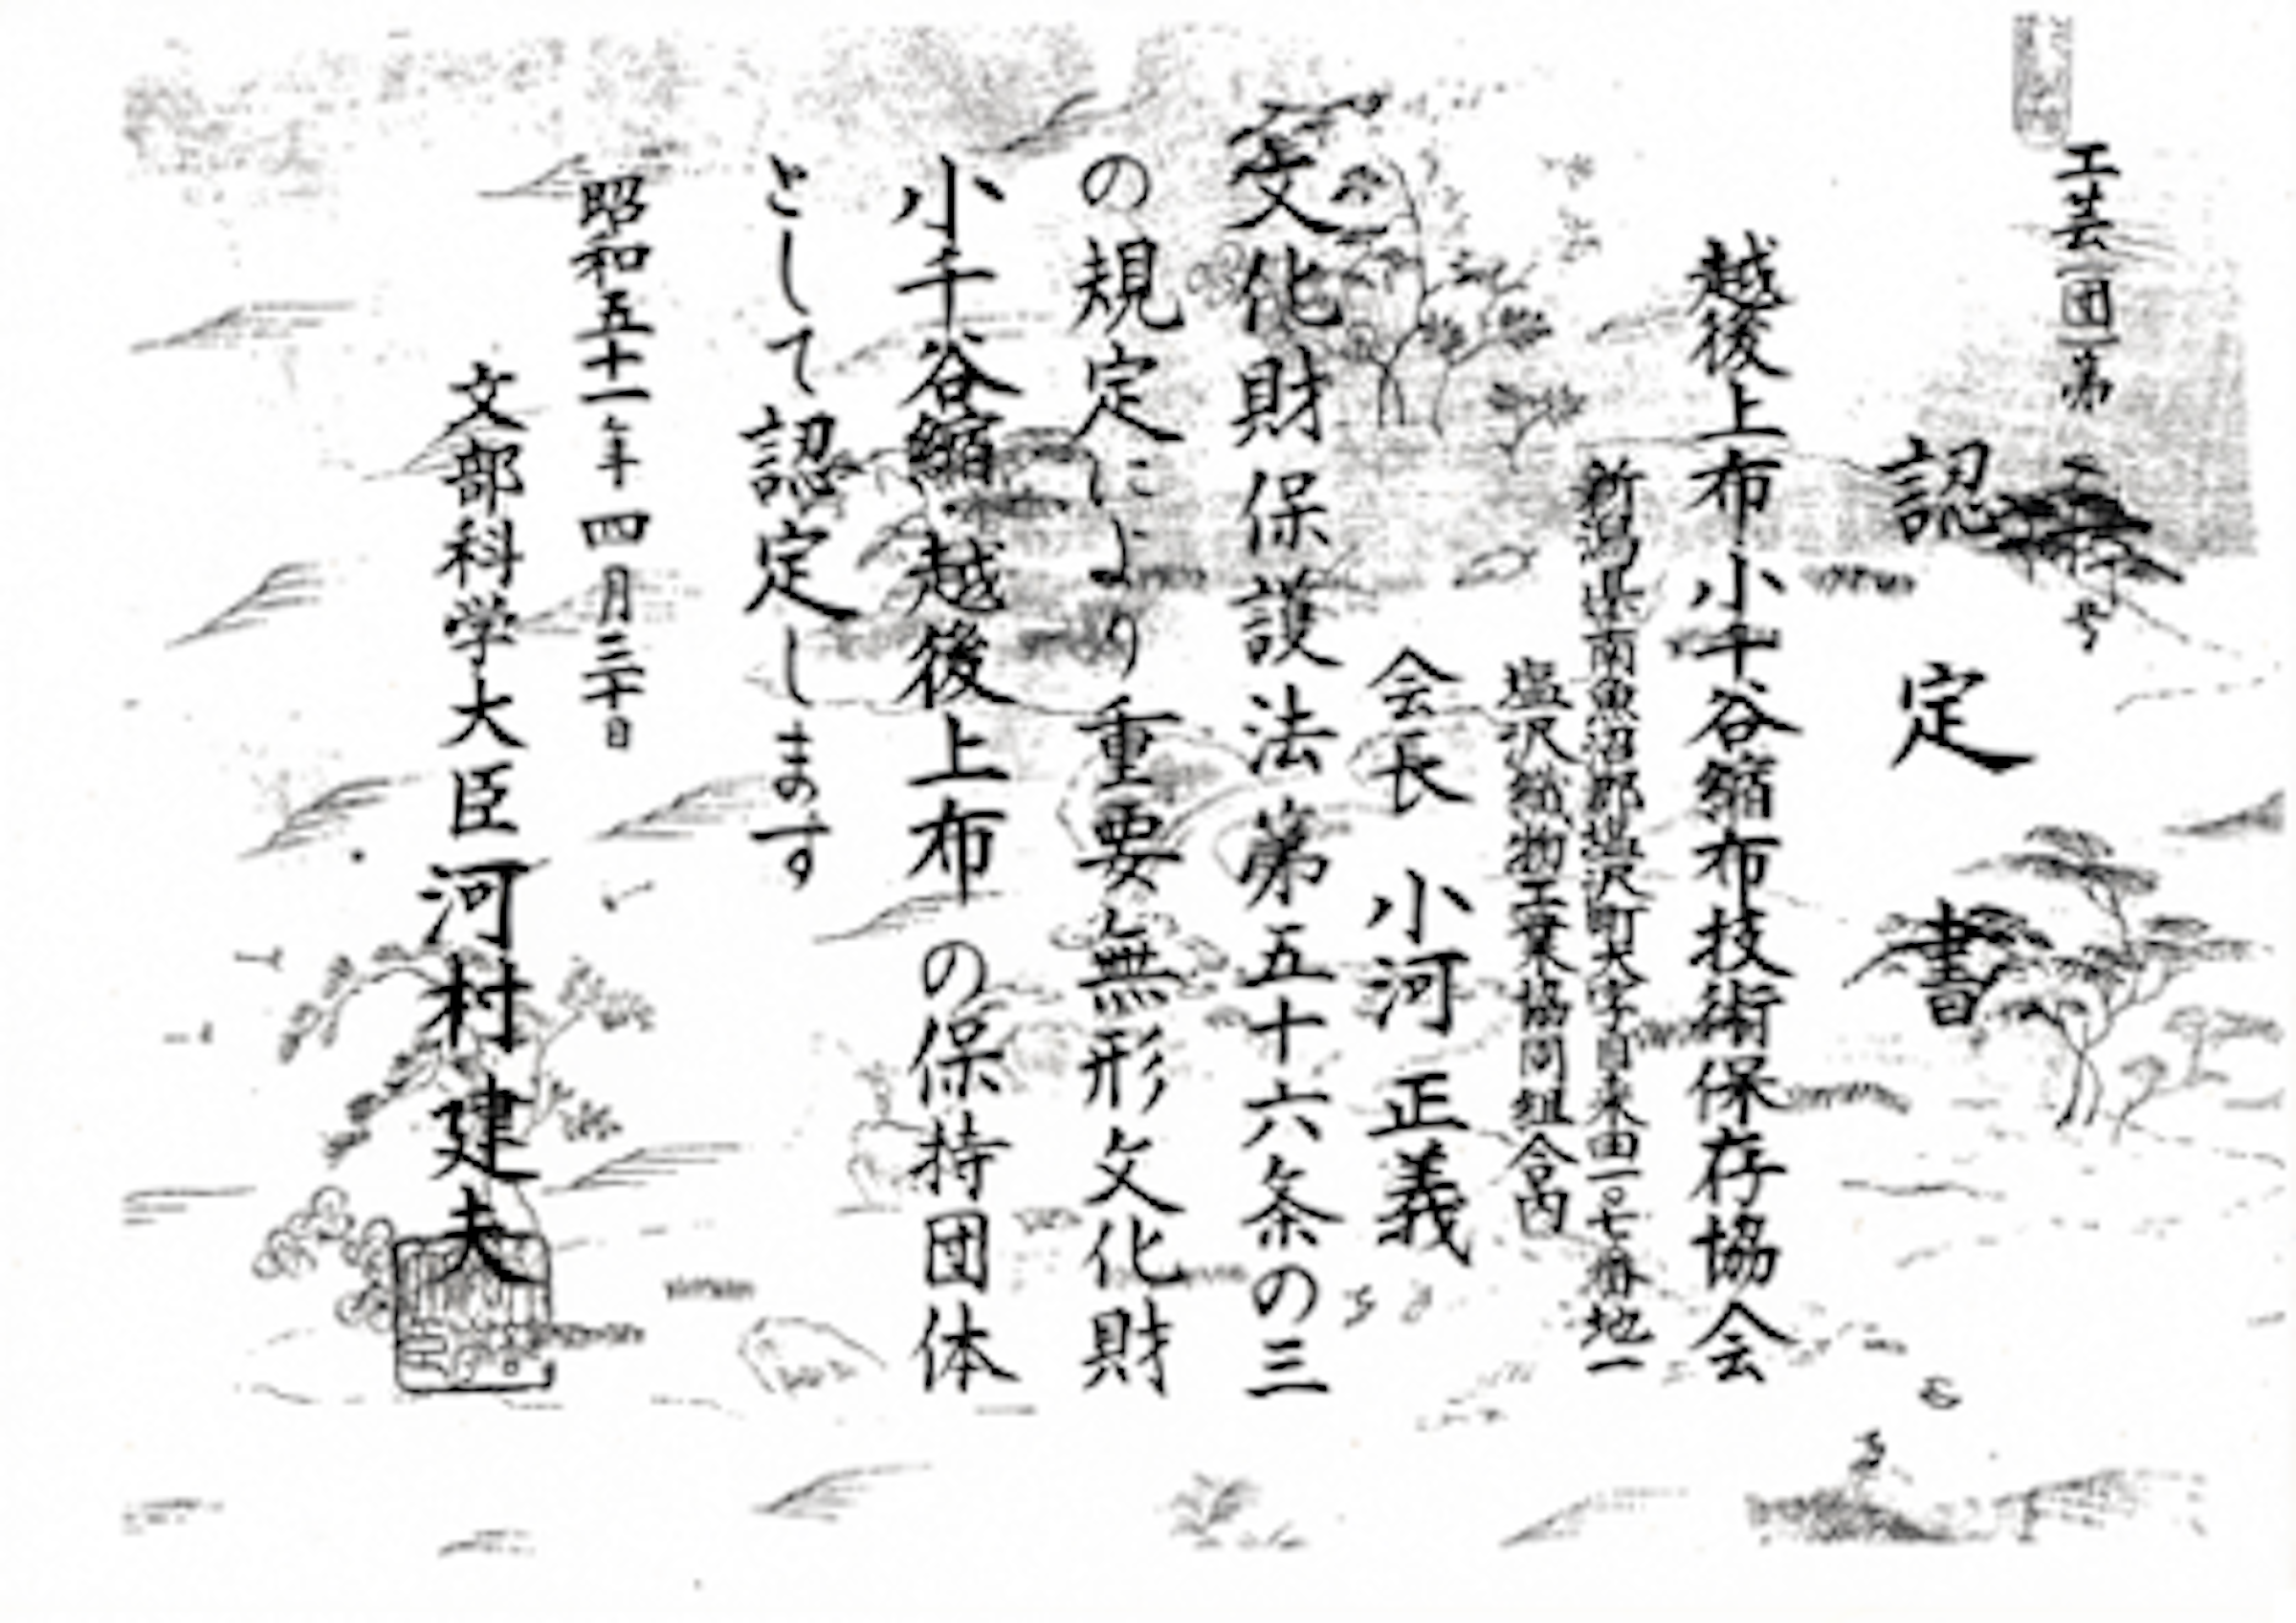 工芸(団)第二号
認定書
越後上布小千谷縮布技術保存協会
新潟県南魚沼郡塩沢町大字目来田一〇七番地一
塩沢織物工業協同組合内
会長 小河正義
文化財保護法第五十六条の三
の規定により重要無形文化財
小千谷縮・越後上布の保持団体
として認定します
昭和五十一年四月三十日
文部科学大臣 河村建夫